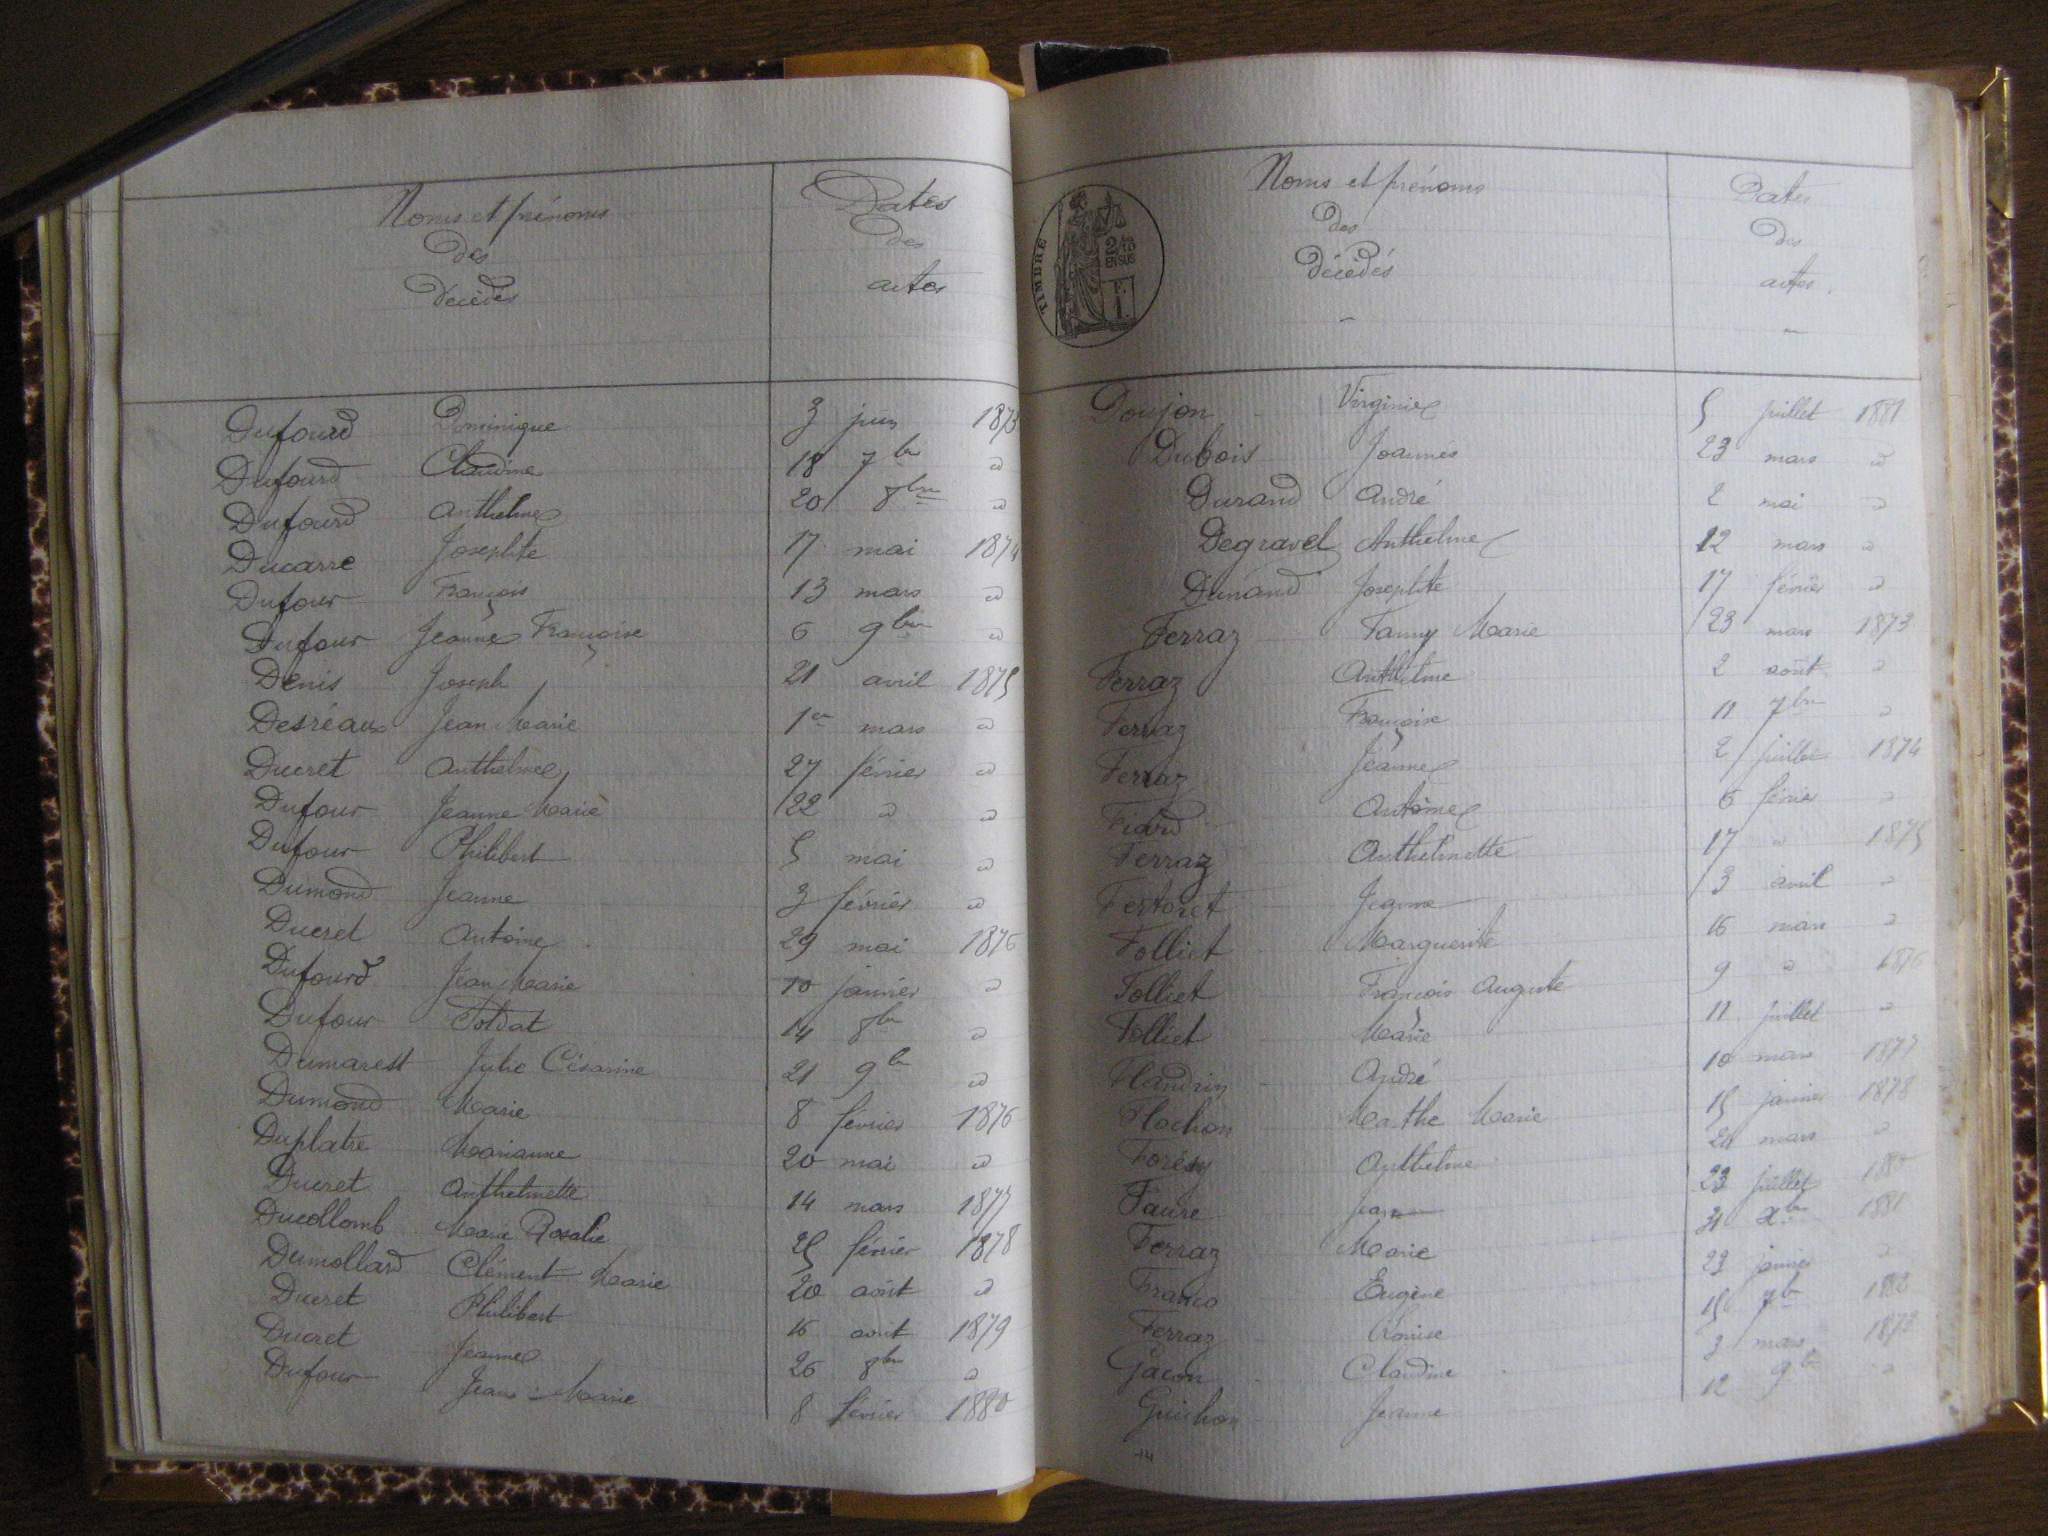 Noms et prénoms
des
Décédés
Dates
des
actes
Dufourd Dominique 3 juin 1873
Dufourd Claudine 18 7bre d
Dufourd Anthelme 20 8bre d
Ducarre Josephte 17 mai 1874
Dufour François 13 mars d
Dufour Jeanne Françoise 6 9bre d
Denis Joseph 21 avril 1875
Desréaux Jean Marie 1er mars d
Ducret Anthelme 27 février d
Dufour Jeanne Marie 22 d d
Dufour Philibert 5 mai d
Dumond Jeanne 3 février d
Ducret Antoine 29 mai 1876
Dufourd Jean Marie 10 janvier d
Dufour Soldat 14 8bre d
Dumarest Julie Césarine 21 9bre d
Dumond Marie 8 février 1876
Duplatre Marianne 20 mai d
Ducret Anthelmette 14 mars 1877
Ducollomb Marie Rosalie 25 février 1878
Dumollard Clément Marie 20 août d
Ducret Philibert 16 avril 1879
Ducret Jeanne 26 8bre d
Dufour Jean Marie 8 février 1880
TIMBRE
2/10
EN SUS
F.
1.
Noms et prénoms
des
Décédés
Dates
des
actes.
Doujon Virginie 5 juillet 1881
Dubois Joannès 23 mars d
Durand André 2 mai d
Degravel Anthelme 12 mars d
Dunand Josephte 17 février d
Ferraz Fanny Marie 23 mars 1873
Ferraz Anthelme 2 août d
Ferraz Françoise 11 7bre d
Ferraz Jeanne 2 juillet 1874
Fiard Antoine 6 février d
Ferraz Anthelmette 17 d 1875
Fertoret Jeanne 3 avril d
Folliet Marguerite 16 mars d
Folliet François Auguste 9 d 1876
Folliet Marie 11 juillet d
Flandrin André 10 mars 1877
Flochon Marthe Marie 15 janvier 1878
Forésy Anthelme 20 mars d
Faure Jean 23 juillet 1880
Ferraz Marie 31 Xbre 1881
Franco Eugène 23 janvier d
Ferraz Louise 15 7bre 1883
Gacon Claudine 3 mars 1873
Guichon Jeanne 12 9bre d